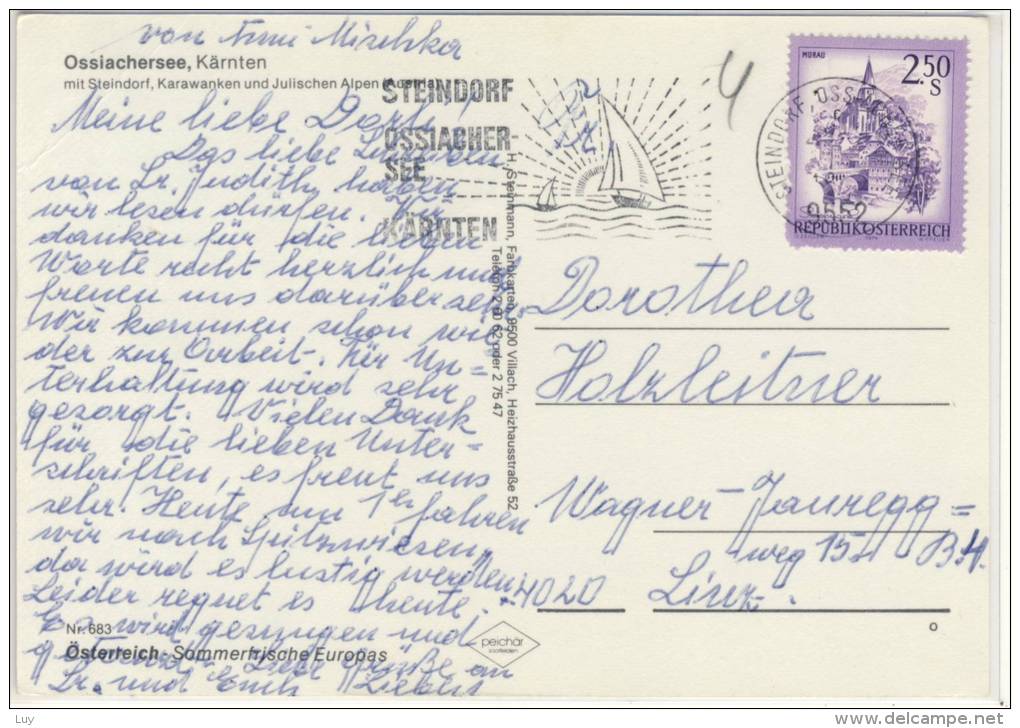 von Anni Mischka
Ossiachersee, Kärnten
mit Steindorf, Karawanken und Julischen Alpen (Austria)
Meine liebe Dorli!
Das liebe
von Sr. Judith, haben
wir lesen dürfen. Wir
danken für die lieben
Worte recht herzlich und
freuen uns darüber sehr.
Wir kommen schon wie
der zur Arbeit. Für Un=
terhaltung wird sehr
gesorgt. Vielen Dank
für die lieben Unter=
schriften, es freut uns
sehr. Heute um 1er fahren
wir nach Spitzwiesen,
da wird es lustig werden.
Leider regnet es heute.
Es wird gesungen und
Liebe Grüße an
Sr. und Euch
Nr. 683
Österreich - Sommerfrische Europas
peichär
saalfelden
STEINDORF
OSSIACHER
SEE
KÄRNTEN
H. Steinmann, Farbkarten, 9500 Villach, Heizhausstraße 52
Telefon 2 60 62 oder 2 75 47
4
MURAU
2.50
S
REPUBLIK ÖSTERREICH
STEINDORF
9552
Dorothea
Holzleitner
Wagner-Jauregg=
weg
4020 Linz.
o
Luy
delcampe.net